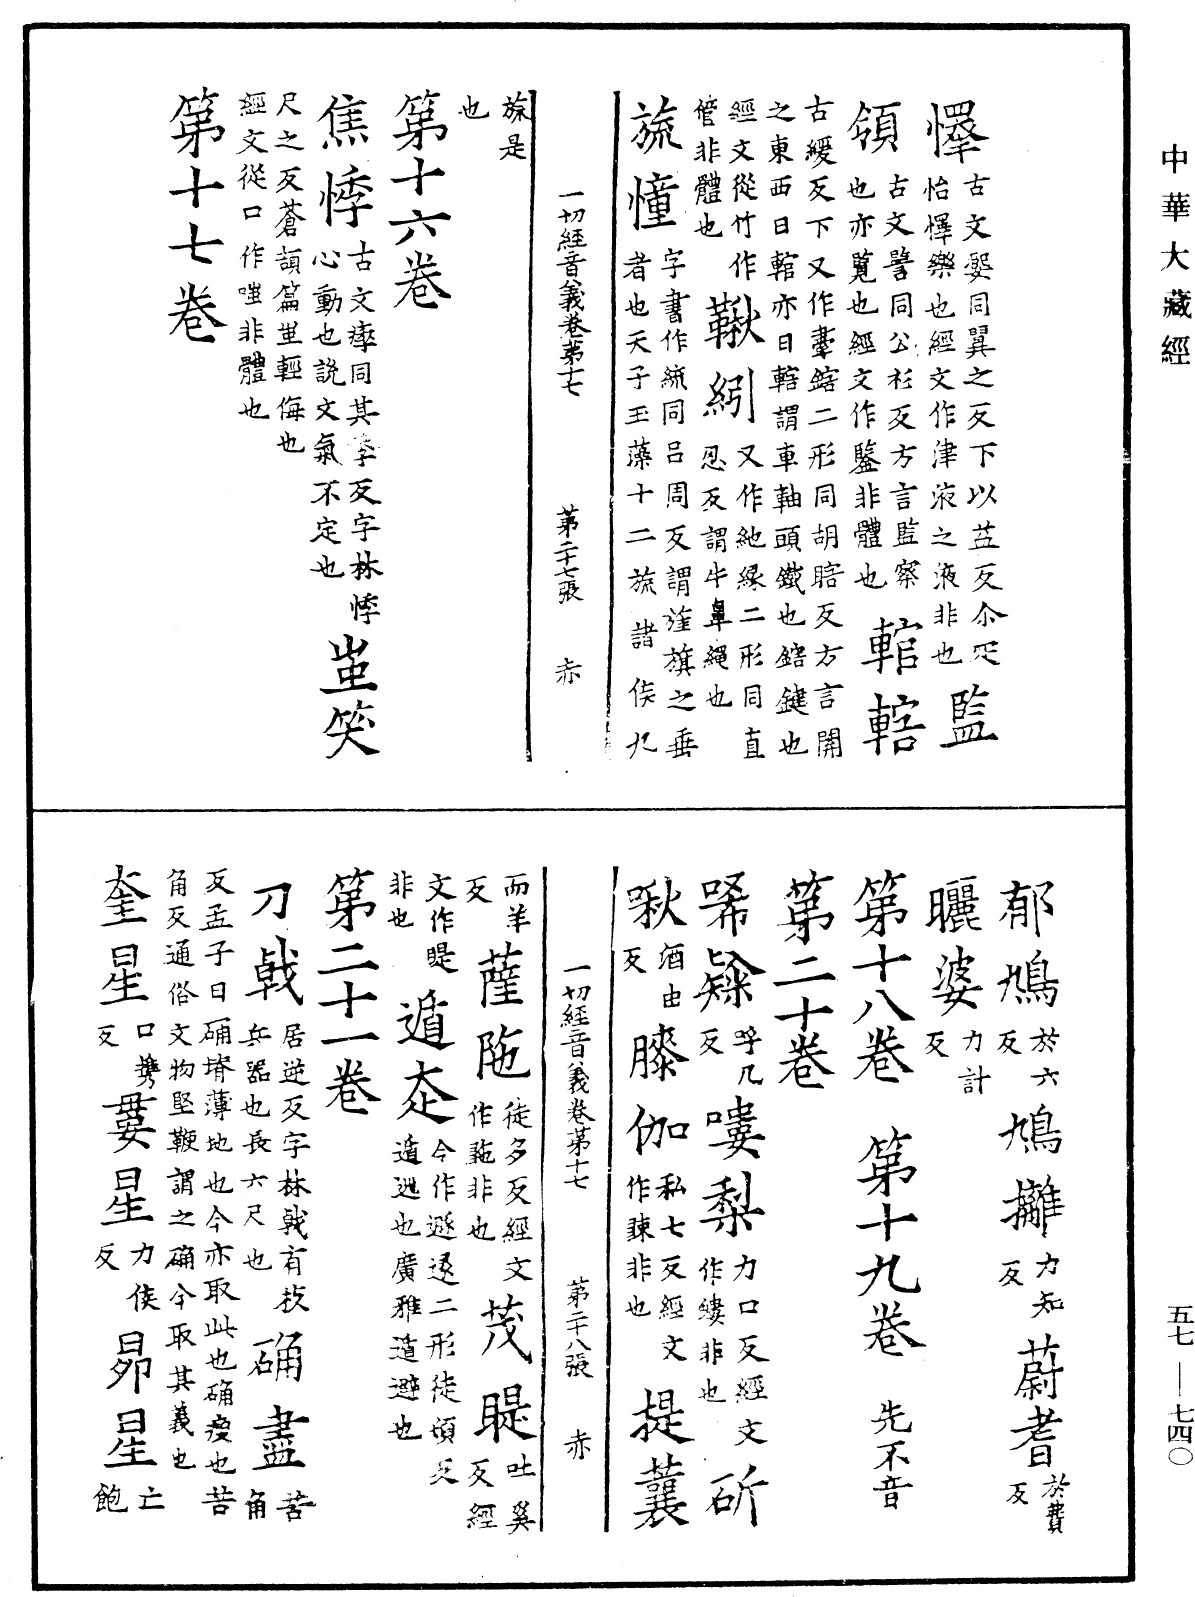 中華大藏經
懌古文㜇同翼之反下以苙反尒疋
怡懌樂也經文作津液之液非也監
領古文譼同公衫反方言監察
也亦覧也經文作鑒非體也輨轄
古緩反下又作舝鎋二形同胡瞎反方言開
之東西曰輨亦曰轄謂車軸頭鐵也鎋鍵也
經文從竹作
管非體也鞦紖又作紖緣二形同直
忍反謂牛鼻繩也
旒幢字書作統同吕周反謂旌旗之垂
者也天子玉藻十二旒諸侯九
一切經音義卷第十七 第二十七張 赤
旒是
也
第十六卷
焦悸古文痵同其季反字林悸
心動也說文氣不定也蚩笑
尺之反蒼頡篇蚩輕侮也
經文從口作嗤非體也
第十七卷
郁鳩於六
反鳩攡力知
反蔚耆於費
反
曬婆力計
反
第十八卷 第十九卷 先不音
第二十卷
唏㱆呼几
反嘍梨力口反經文
作縷非也斫
啾酒由
反膝伽私七反經文
作諌非也提蘘
一切經音義卷第十七 第二十八張 赤
而羊
反薩陁徒多反經文
作䭾非也茂㫼吐奚
反經
文作睼
非也遁㞮今作遯遂二形徒頓反
遁逃也廣雅遁避也
第二十一卷
刀戟居逆反字林戟有枝
兵器也長六尺也确盡苦
角
反孟子曰确塉薄地也今亦取此也确瘦也苦
角反通俗文物堅鞕謂之确今取其義也
奎星口攜
反婁星力侯
反昴星亡
飽
五七—七四〇